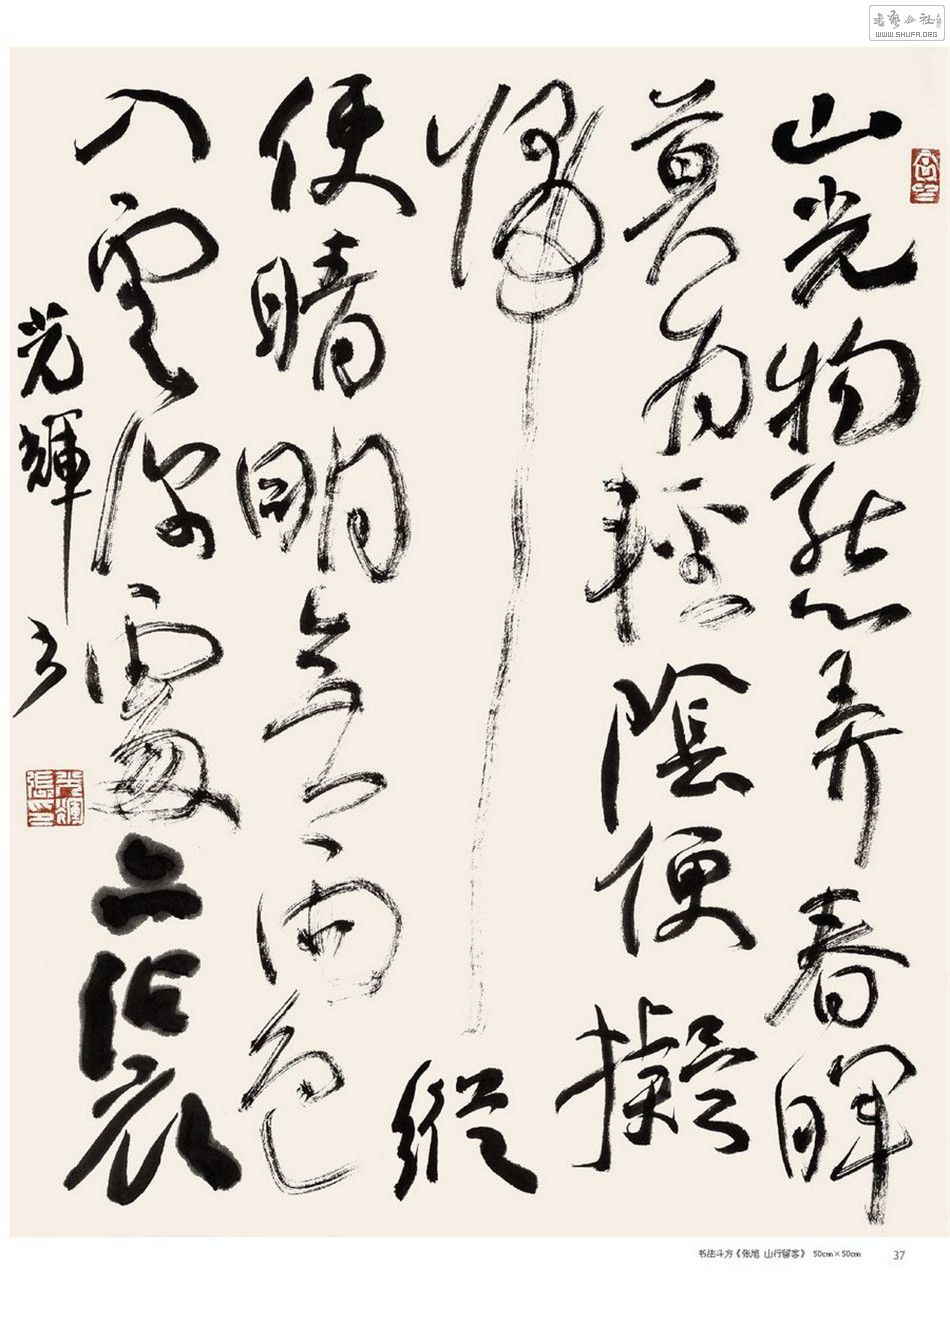 山光物態弄春暉
莫為輕陰便擬
歸縱
使晴明無雨色
入雲深處亦沾衣
光輝書
光輝張印
书法斗方《张旭 山行留客》 50cm×50cm
37
書藝公社
WWW.SHUFA.ORG